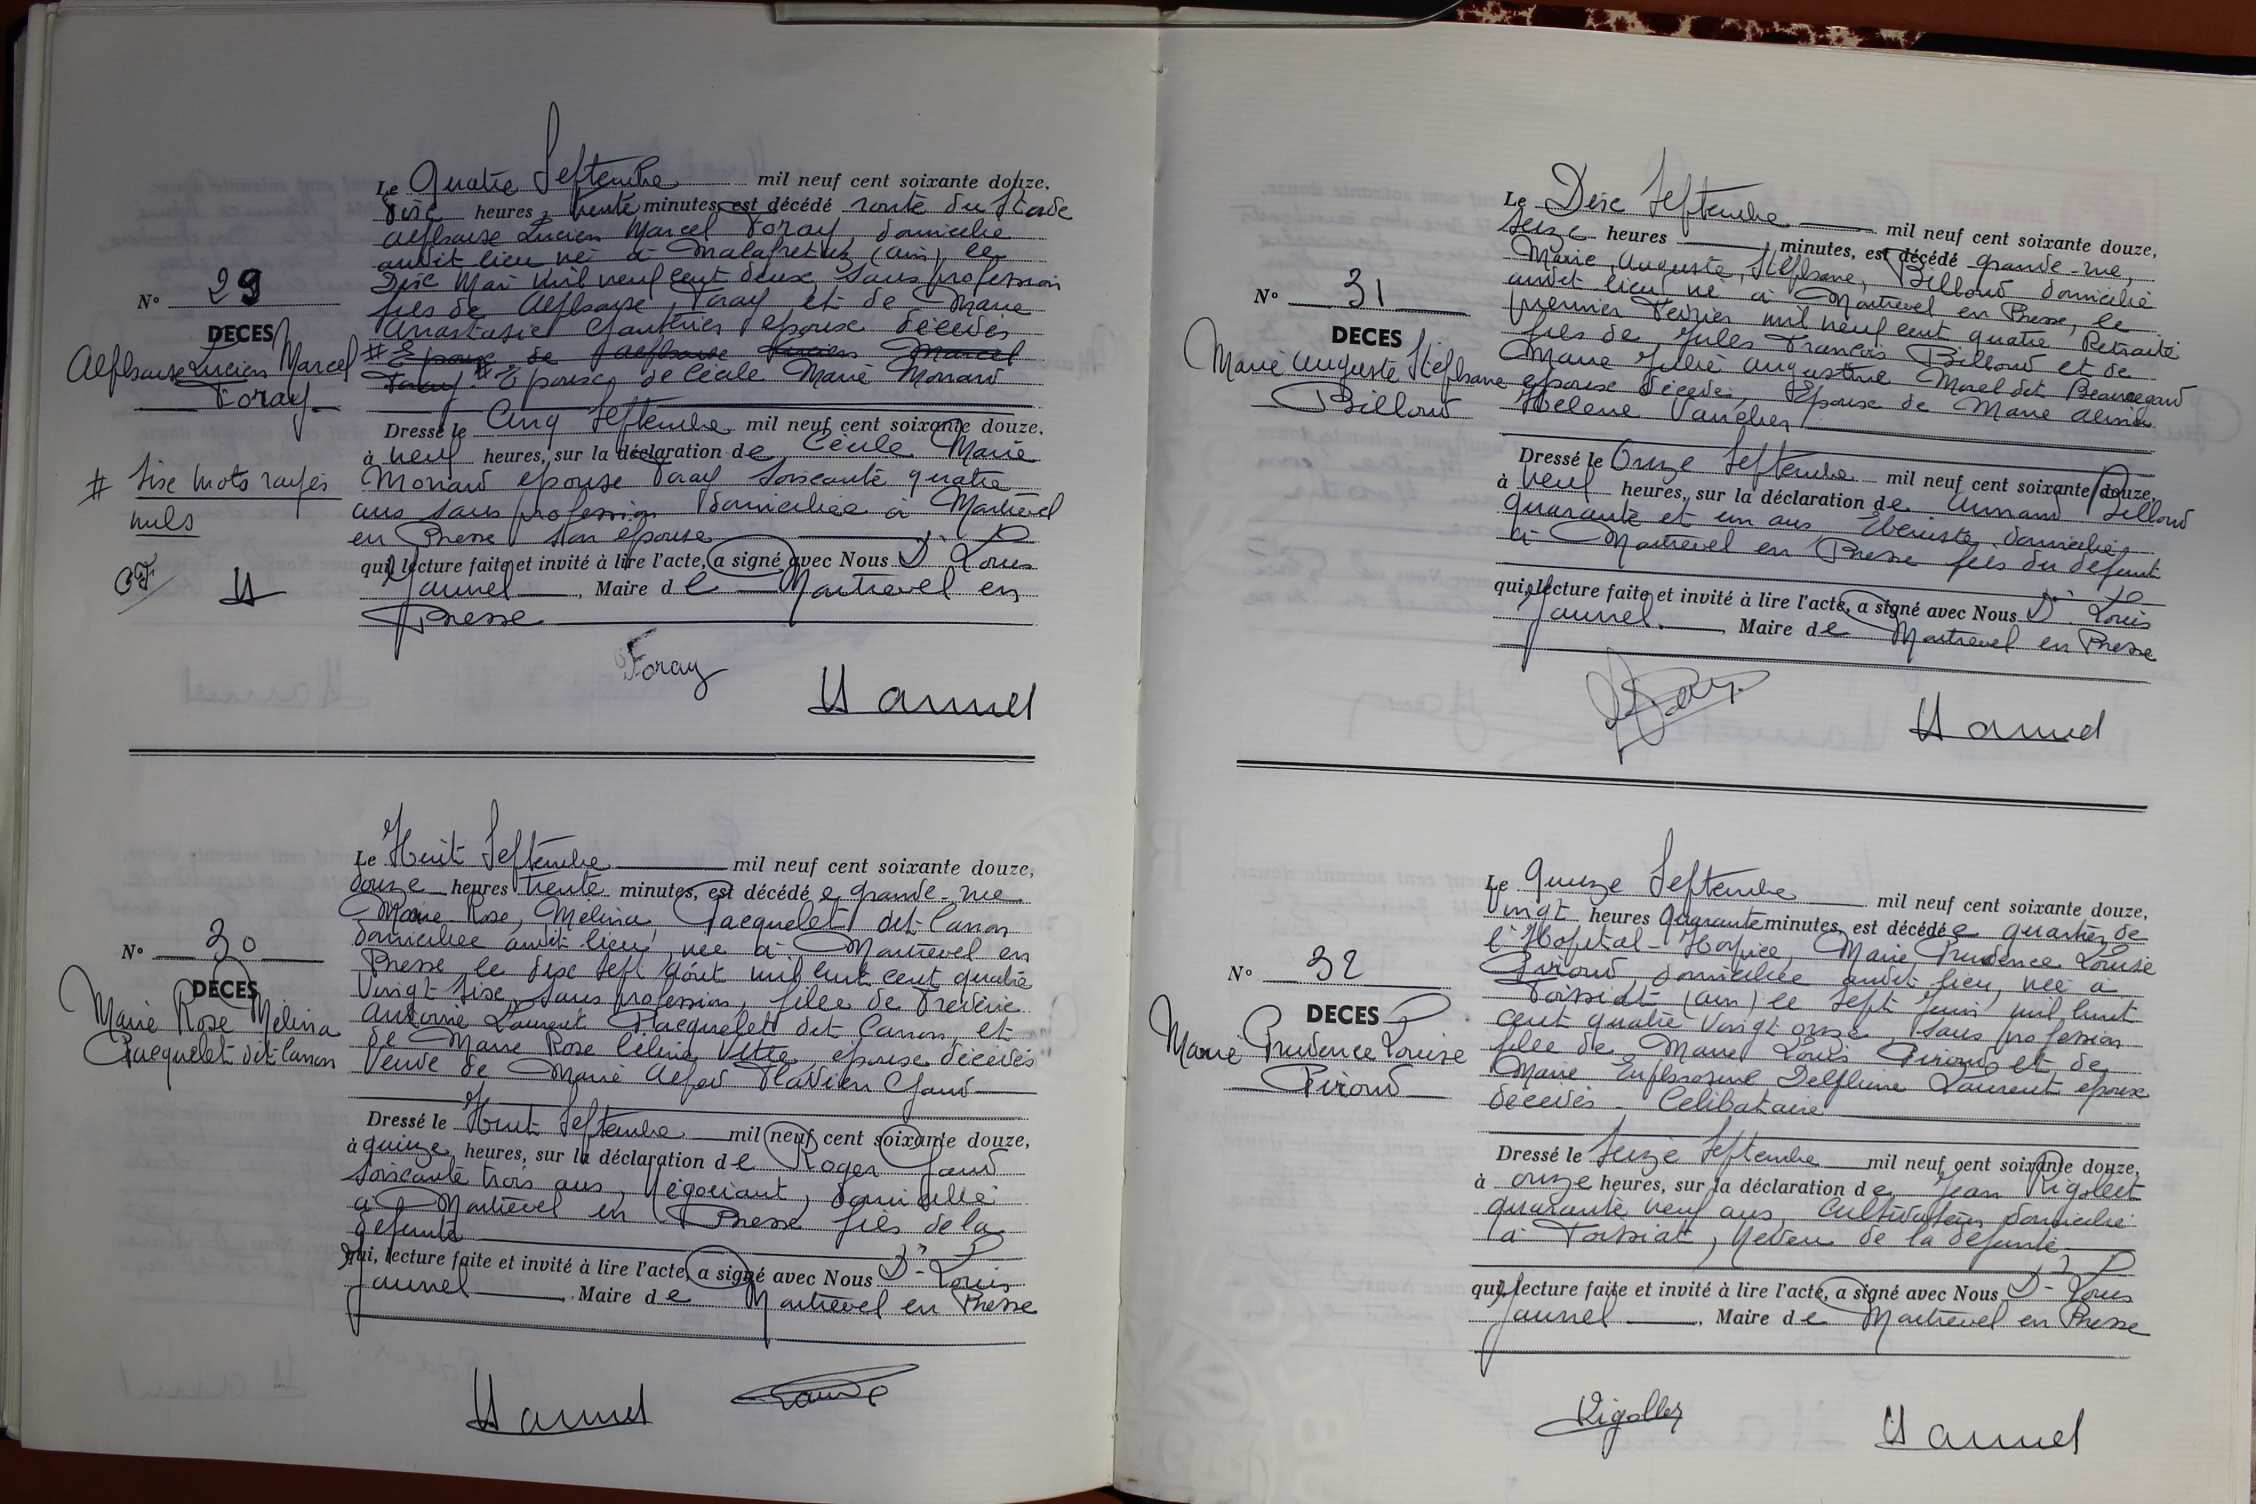 Le Quatre Septembre mil neuf cent soixante douze,
dix heures, trente minutes, est décédé route du Stade
Alphonse Lucien Marcel Foray, domicilié
audit lieu né à Malafretaz (ain) le
Dix Mai mil neuf cent deux, sans profession
fils de Alphonse, Foray et de Marie
Anastasie Gauthier époux décédés
# Epoux de Alphonse Lucien Marcel
Foray # Epoux de Cécile Marie Monard
N° 29
DECES
Alphonse Lucien Marcel
Foray
# Six mots rayés
nuls
Dressé le Cinq Septembre mil neuf cent soixante douze,
à neuf heures, sur la déclaration de Cécile Marie
Monard épouse Foray Soixante quatre
ans sans profession domiciliée à Montrevel
en Bresse son épouse
qui, lecture faite et invité à lire l'acte, a signé avec Nous Dr Louis
Jaunel, Maire de Montrevel en
Bresse
Foray
Jaunel
Le Huit Septembre mil neuf cent soixante douze,
douze heures trente minutes, est décédée grande-rue
Marie Rose, Mélina, Pacquelet dit Canon
domiciliée audit lieu, née à Montrevel en
Bresse le dix sept Août mil huit cent quatre
Vingt Six, sans profession, fille de Frédéric
Antoine Laurent Pacquelet dit Canon et
de Marie Rose Célina Vitte, époux décédés
Veuve de Marie Alfred Flavien Gaud
N° 30
DECES
Marie Rose Mélina
Pacquelet dit Canon
Dressé le Huit Septembre mil neuf cent soixante douze,
à quinze heures, sur la déclaration de Roger Gaud
Soixante trois ans, Négociant, domicilié
à Montrevel en Bresse fils de la
défunte
qui, lecture faite et invité à lire l'acte, a signé avec Nous Dr Louis
Jaunel, Maire de Montrevel en Bresse
Jaunel Gaud
Le Dix Septembre mil neuf cent soixante douze,
Seize heures minutes, est décédé grande-rue,
Marie, Auguste, Stéphane, Billoud domicilié
audit lieu né à Montrevel en Bresse, le
premier Février mil neuf cent quatre, Retraité
fils de Jules François Billoud et de
Marie Julie Augustine Morel dit Beauregard
époux décédés, Epoux de Marie
Hélène
N° 31
DECES
Marie Auguste Stéphane
Billoud
Dressé le Onze Septembre mil neuf cent soixante douze,
à neuf heures, sur la déclaration de Armand Billoud
quarante et un ans Ebéniste domicilié
à Montrevel en Bresse fils du défunt
qui, lecture faite et invité à lire l'acte, a signé avec Nous Dr Louis
Jaunel, Maire de Montrevel en Bresse
Jaunel
Le Quinze Septembre mil neuf cent soixante douze,
Vingt heures quarante minutes, est décédée quartier de
l'Hopital-Hospice, Marie Prudence Louise
Piroud domiciliée audit lieu, née à
Foissiat (ain) le Sept Juin mil huit
cent quatre Vingt onze, sans profession
fille de Marie Louis Piroud et de
Marie Euphrosine Delphine Laurent, époux
décédés - Célibataire
N° 32
DECES
Marie Prudence Louise
Piroud
Dressé le Seize Septembre mil neuf cent soixante douze,
à onze heures, sur la déclaration de Jean Rigollet
quarante neuf ans, Cultivateur domicilié
à Foissiat, Neveu de la défunte,
qui, lecture faite et invité à lire l'acte, a signé avec Nous Dr Louis
Jaunel, Maire de Montrevel en Bresse
Rigollet
Jaunel